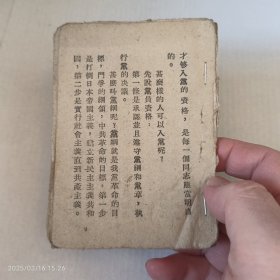 才够入黨的資格，是每一個同志應當明白
的。
甚麽樣的人可以入黨呢？
先說黨員資格：
第一條是承認並且遵守黨綱和黨章，執
行黨的决議。
甚麽叫黨綱呢？黨綱就是我黨革命的目
標，鬥爭的綱領，中共革命的目標，第一步
是打倒日本帝國主義，建立新民主主義共和
國，第二步是實行社會主義直到共產主義。
2025/02/16 15:26